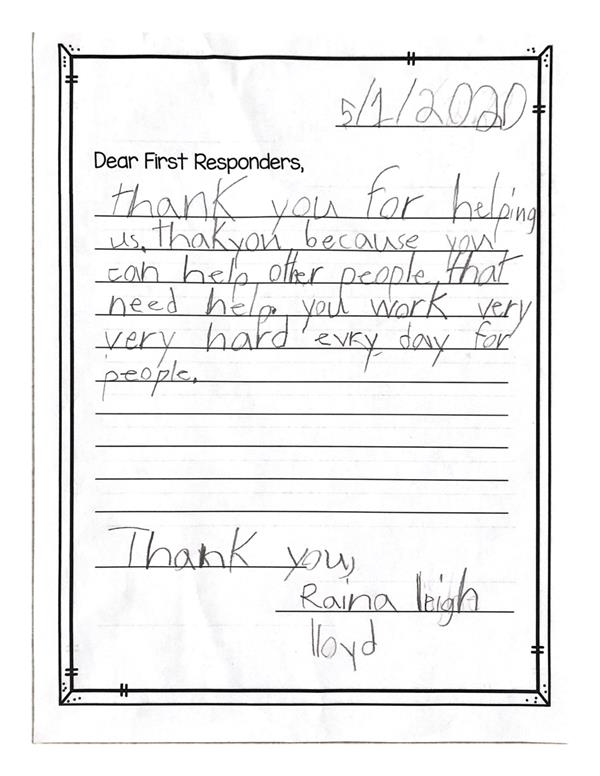 5/1/2020
Dear First Responders,
thank you for helping
us. thakyou because you
can help otler people that
need help. you work very
very hard evry day for
people.
Thank you,
Raina leigh
lloyd